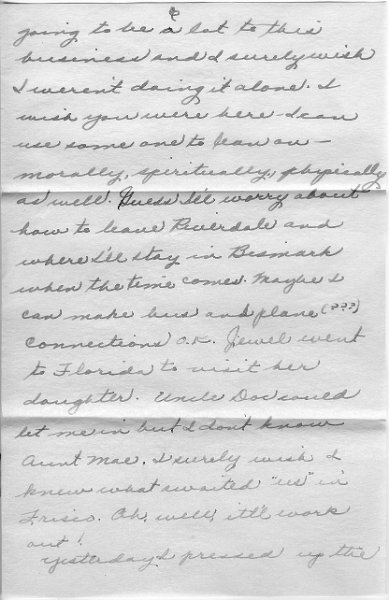 going to be a lot to this
business and I surely wish
I weren't doing it alone. I
wish you were here I can
use some one to lean on—
morally, spiritually, physically
as well. Guess I'll worry about
how to leave Riverdale and
where I'll stay in Bismark
when the time comes. Maybe I
can make bus and plane (???)
connections O.K. Jewel went
to Florida to visit her
daughter. Uncle Doc would
let me in but I don't know
Aunt Mae. I surely wish I
knew what awaited "us" in
Frisco. Oh, well, it'll work
out!
Yesterday I pressed up the